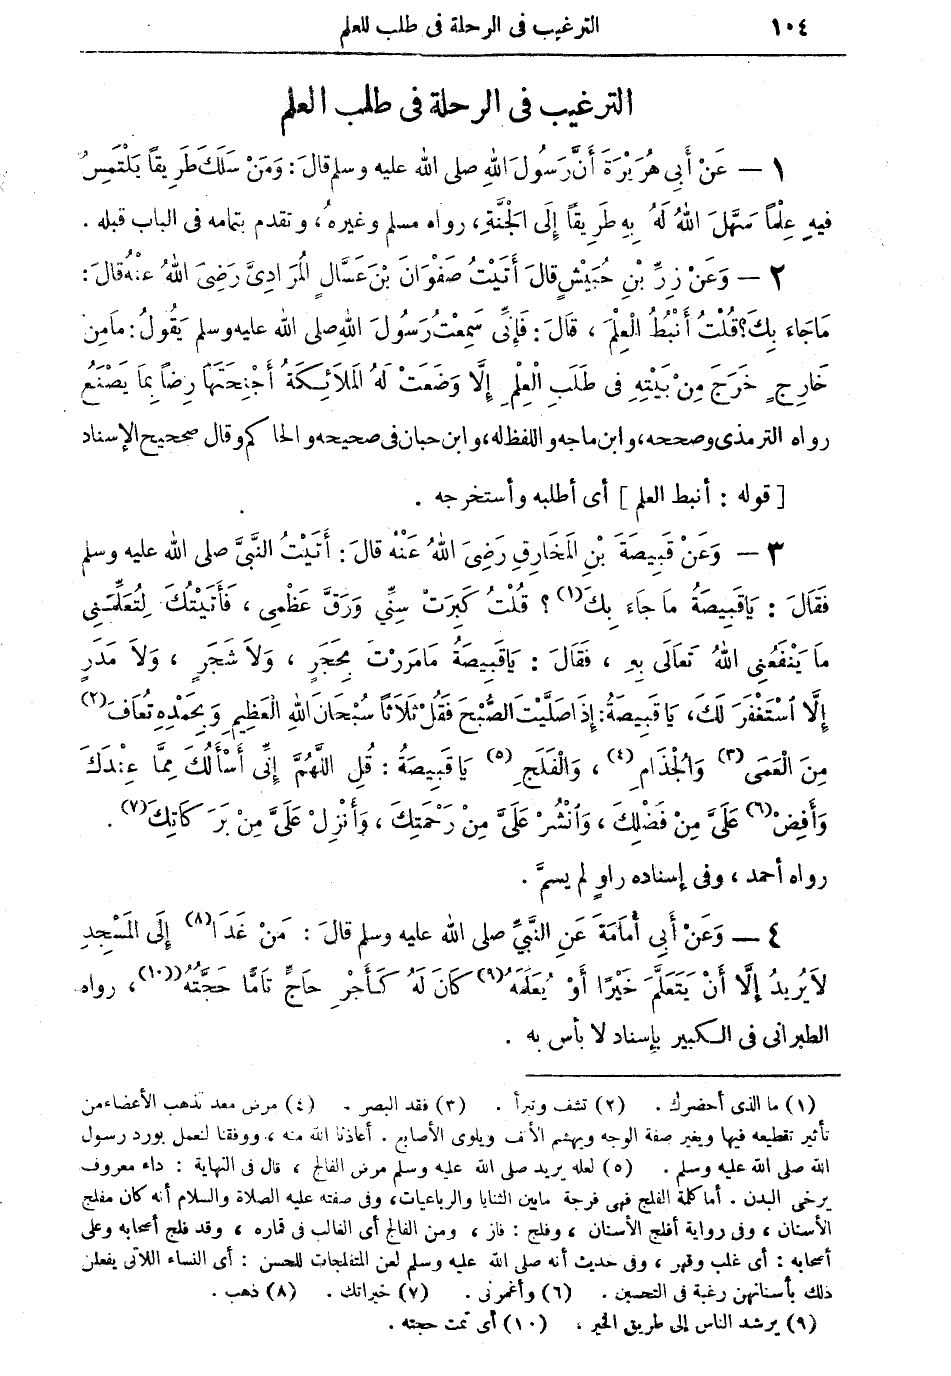 ١٠٤ الترغيب فى الرحلة فى طلب للعلم
الترغيب فى الرحلة فى طلب العلم
١ — عَنْ أَبِى هُرَيْرَةَ أَنَّ رَسُولَ اللهِ صلى الله عليه وسلم قالَ: وَمَنْ سَلَكَ طَرِيقاً يَلْتَمِسُ
فيهِ عِلْماً سَهَّلَ اللهُ لَهُ بِهِ طَرِيقاً إِلَى الْجَنَّةِ، رواه مسلم وغيرهُ، وتقدم بتمامه فى الباب قبله .
٢ — وَعَنْ زِرِّ بْنِ حُبَيْشٍ قالَ أَتَيْتُ صَفْوَانَ بْنَ عَسَّالٍ الْمُرَادِىَّ رَضِىَ اللهُ عنْهُ قالَ:
مَا جَاءَ بِكَ؟ قُلْتُ أَنْبُطُ الْعِلْمَ ، قَالَ: فَإِنِّى سَمِعْتُ رَسُولَ اللهِ صلى الله عليه وسلم يَقُولُ: مَا مِنْ
خَارِجٍ خَرَجَ مِنْ بَيْتِهِ فِى طَلَبِ الْعِلْمِ إِلَّا وَضَعَتْ لَهُ الْمَلَائِكَةُ أَجْنِحَتَهَا رِضاً بِمَا يَصْنَعُ
رواه الترمذى وصححه، وابن ماجه واللفظ له، وابن حبان فى صحيحه والحاكم وقال صحيح الإسناد
[ قوله : أنبط العلم ] أى أطلبه وأستخرجه .
٣ — وَعَنْ قَبِيصَةَ بْنِ الْمُخَارِقِ رَضِىَ اللهُ عَنْهُ قالَ: أَتَيْتُ النَّبِىَّ صلى الله عليه وسلم
فَقَالَ : يَاقَبِيصَةُ مَا جَاءَ بِكَ (١) ؟ قُلْتُ كَبِرَتْ سِنِّي وَرَقَّ عَظْمِى ، فَأَتَيْتُكَ لِتُعَلِّمَنِى
مَا يَنْفَعُنِى اللهُ تَعَالَى بِهِ ، فَقَالَ : يَاقَبِيصَةُ مَامَرَرْتَ بِحَجَرٍ ، وَلاَ شَجَرٍ ، وَلاَ مَدَرٍ
إِلَّا اسْتَغْفَرَ لَكَ، يَا قَبِيصَةُ: إِذَا صَلَّيْتَ الصُّبْحَ فَقُلْ ثَلاَثاً سُبْحَانَ اللهِ الْعَظِيمِ وَبِحَمْدِهِ تُعَافَ (٢)
مِنَ الْعَمَى (٣) وَالْجُذَامِ (٤) ، وَالْفَلَجِ (٥) يَاقَبِيصَةُ : قُلِ اللَّهُمَّ إِنِّى أَسْأَلُكَ مِمَّا عِنْدَكَ
وَأَفِضْ (٦) عَلَىَّ مِنْ فَضْلِكَ ، وَانْشُرْ عَلَىَّ مِنْ رَحْمَتِكَ ، وَأَنْزِلْ عَلَىَّ مِنْ بَرَكَاتِكَ (٧) .
رواه أحمد ، وفى إسناده راوٍ لم يسمَّ .
٤ — وَعَنْ أَبِي أُمَامَةَ عَنِ النَّبِيِّ صلى الله عليه وسلم قالَ : مَنْ غَدَا (٨) إِلَى الْمَسْجِدِ
لاَ يُرِيدُ إِلَّا أَنْ يَتَعَلَّمَ خَيْرًا أَوْ يُعَلِّمَهُ (٩) كَانَ لَهُ كَأَجْرِ حَاجٍّ تَامًّا حَجَّتُهُ (١٠) ، رواه
الطبرانى فى الكبير بإسناد لا بأس به .
(١) ما الذى أحضرك . (٢) تشف وتبرأ . (٣) فقد البصر . (٤) مرض معد تذهب الأعضاء من
تأثير تقطيعه فيها ويغير صفة الوجه ويهشم الأنف ويلوى الأصابع . أعاذنا الله منه ، ووفقنا لنعمل بورد رسول
الله صلى الله عليه وسلم . (٥) لعله يريد صلى الله عليه وسلم مرض الفالج ، قال فى النهاية : داء معروف
يرخى البدن . أما كلمة الفلج فهى فرجة مابين الثنايا والرباعيات، وفى صفته عليه الصلاة والسلام أنه كان مفلج
الأسنان ، وفى رواية أفلج الأسنان ، وفلج : فاز ، ومن الفالج أى الغالب فى قماره ، وقد فلج أصحابه وعلى
أصحابه : أى غلب وقهر ، وفى حديث أنه صلى الله عليه وسلم لعن المتفلجات للحسن : أى النساء اللاتى يفعلن
ذلك بأسنانهن رغبة فى التحسين . (٦) وأغمرنى . (٧) خيراتك . (٨) ذهب .
(٩) يرشد الناس إلى طريق الخير ، (١٠) أى تمت حجته .